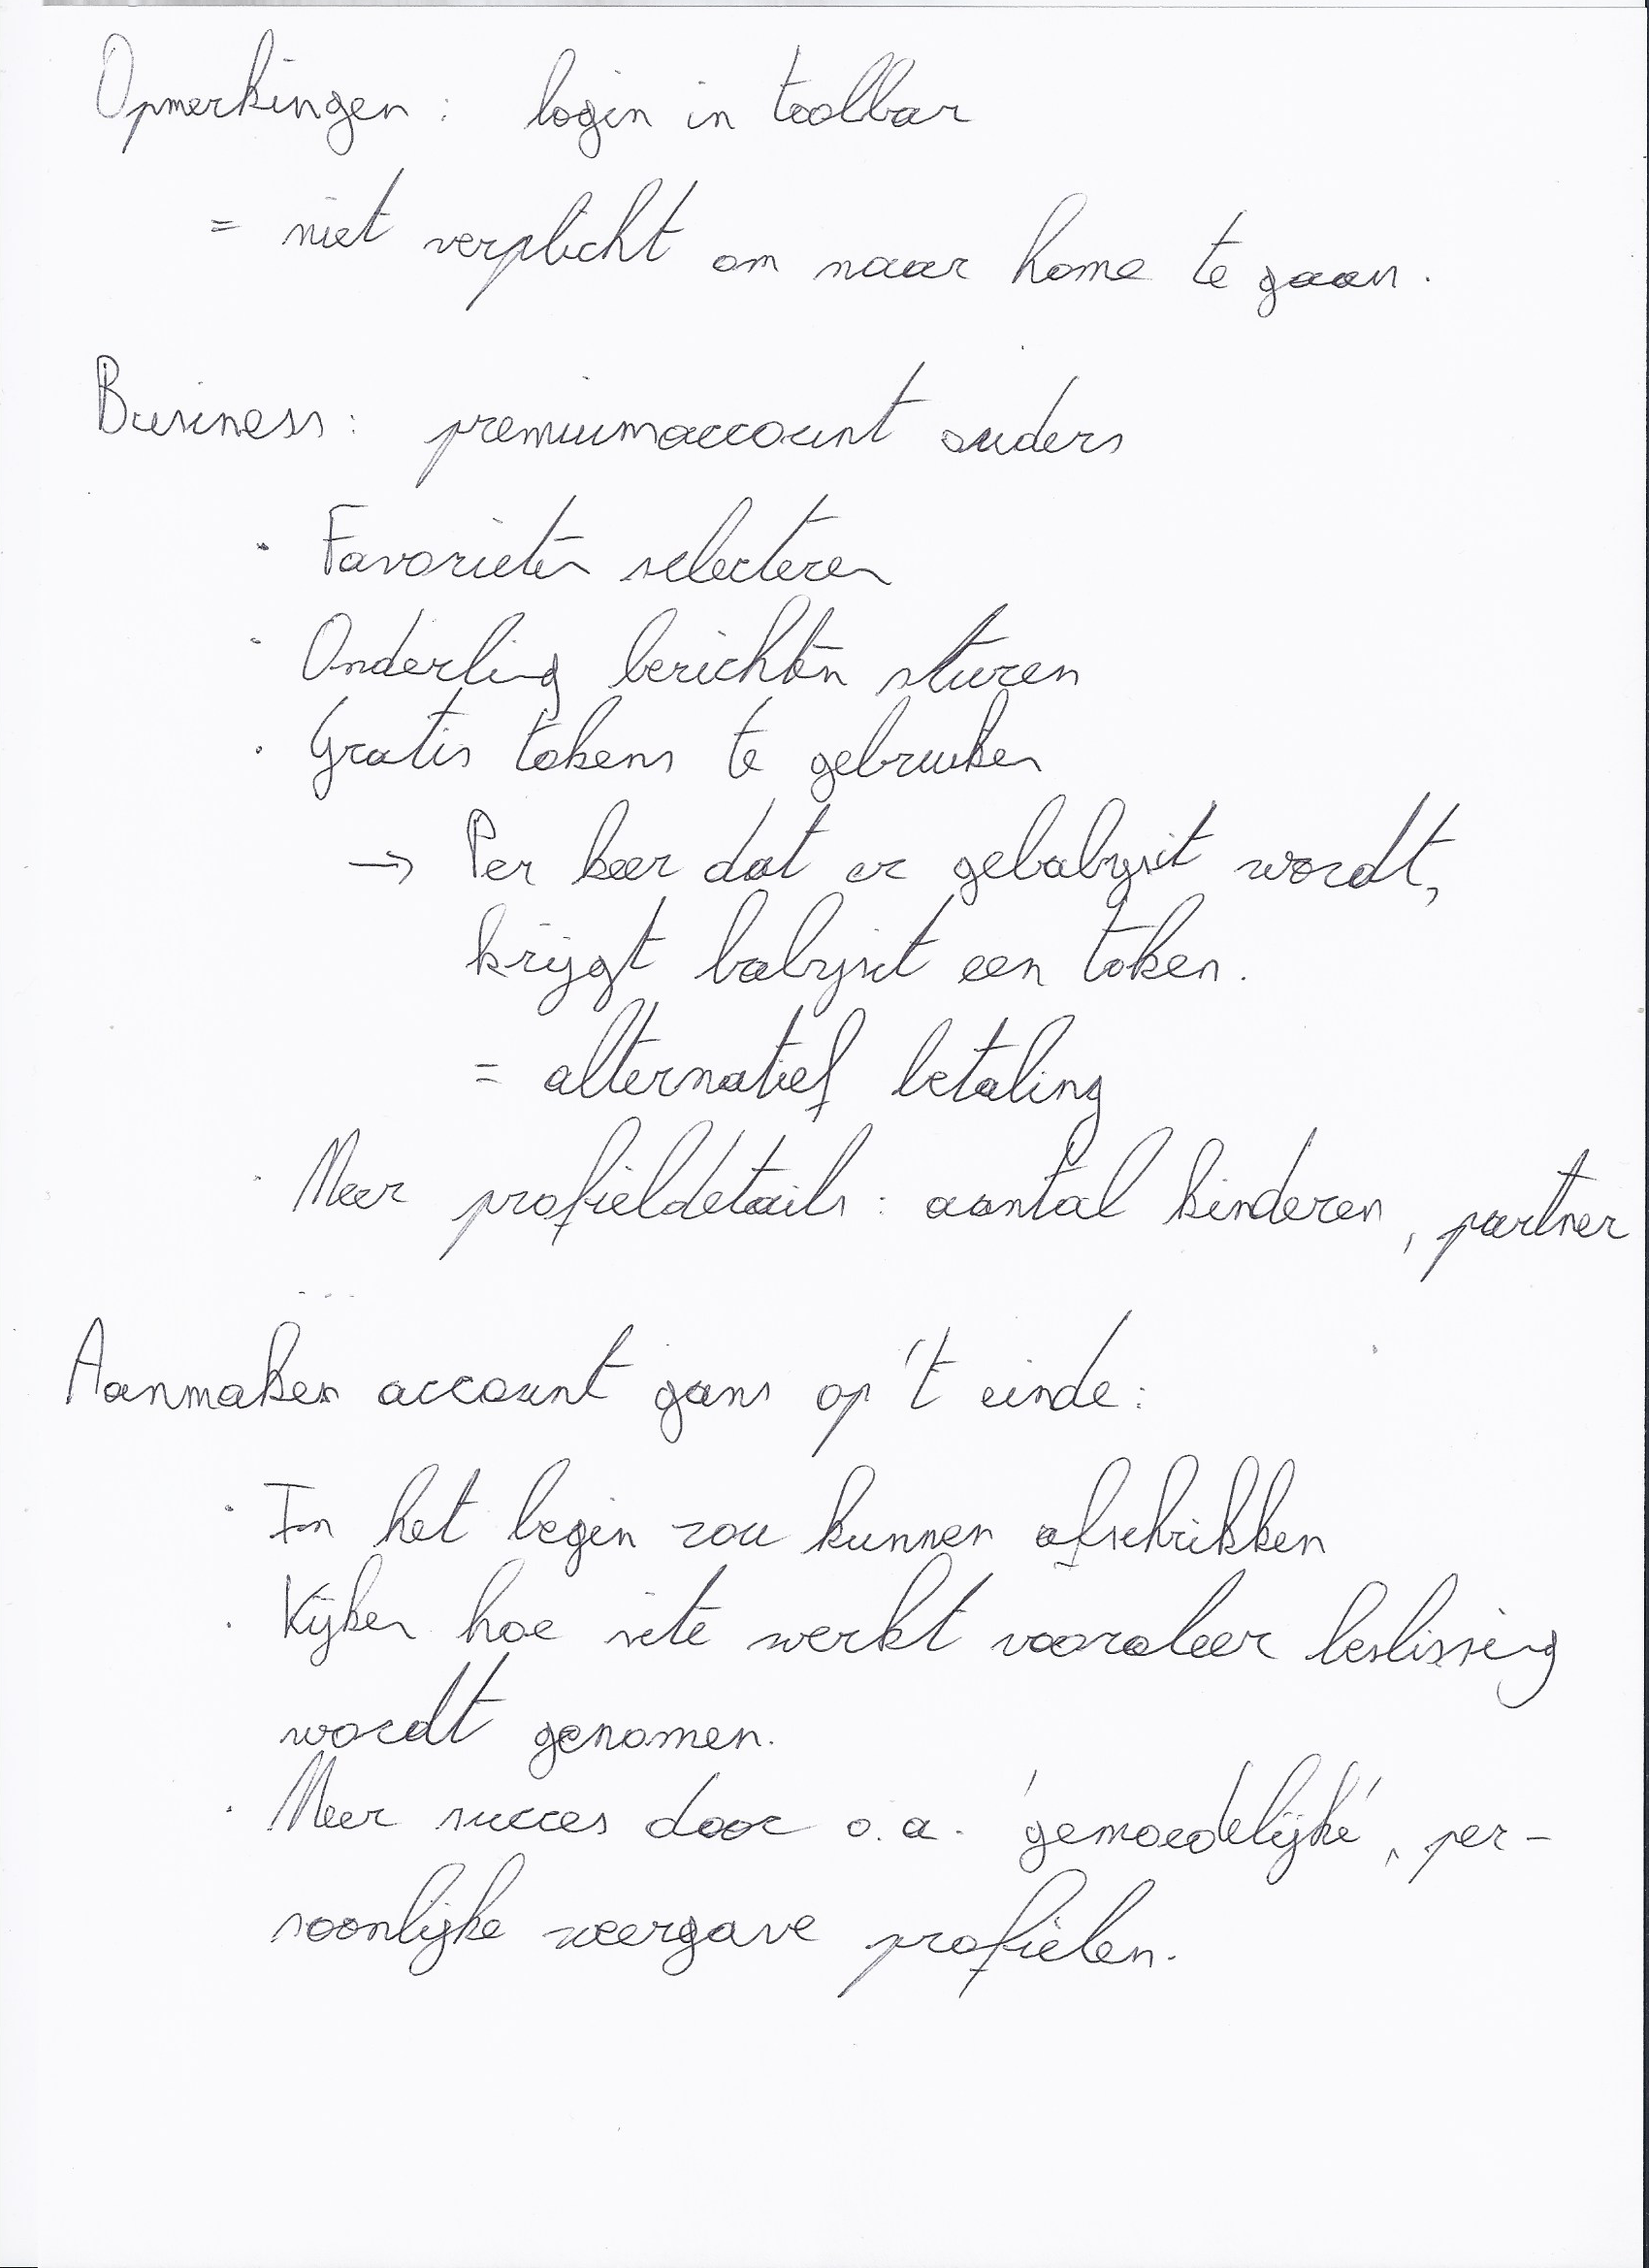 Opmerkingen: login in toolbar
= niet verplicht om naar home te gaan.
Business: premiumaccount ouders
· Favorieten selecteren
· Onderling berichten sturen
· Gratis tokens te gebruiken
→ Per keer dat er gebabysit wordt,
krijgt babysit een token.
= alternatief betaling
· Meer profieldetails: aantal kinderen, partner
...
Aanmaken account gans op 't einde:
· In het begin zou kunnen afschrikken
· Kijken hoe site werkt vooraleer beslissing
wordt genomen.
· Meer succes door o.a. 'gemoedelijke', per-
soonlijke weergave profielen.